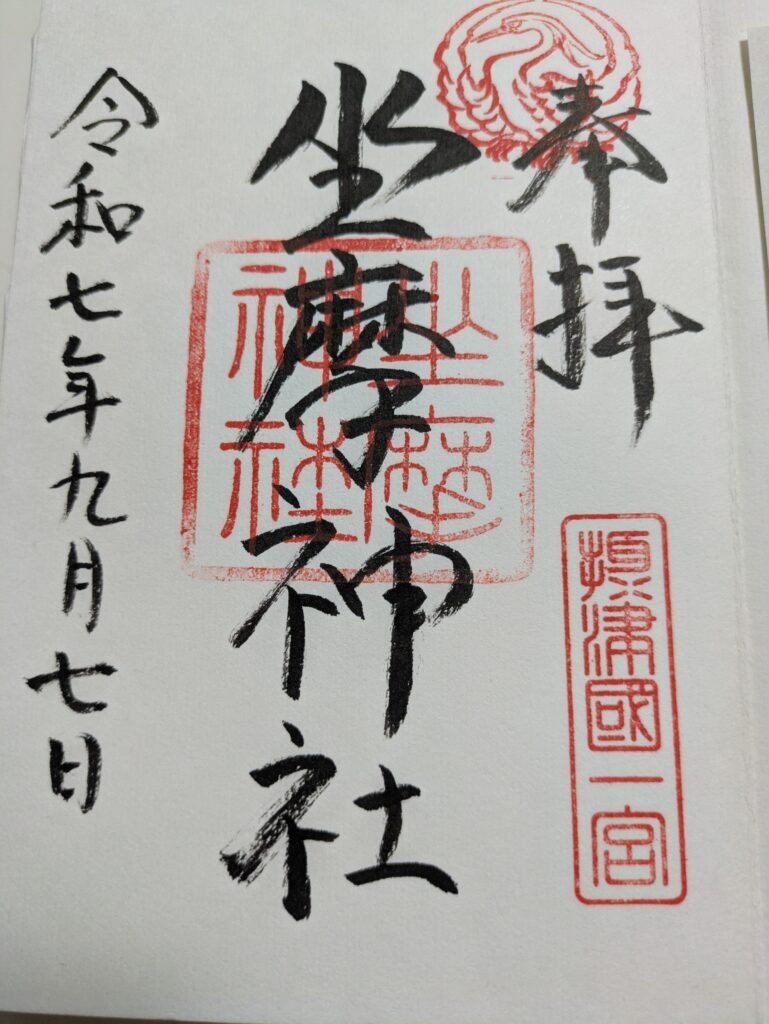 奉拝
攝津國一宮
坐摩神社
坐摩神社
令和七年九月七日